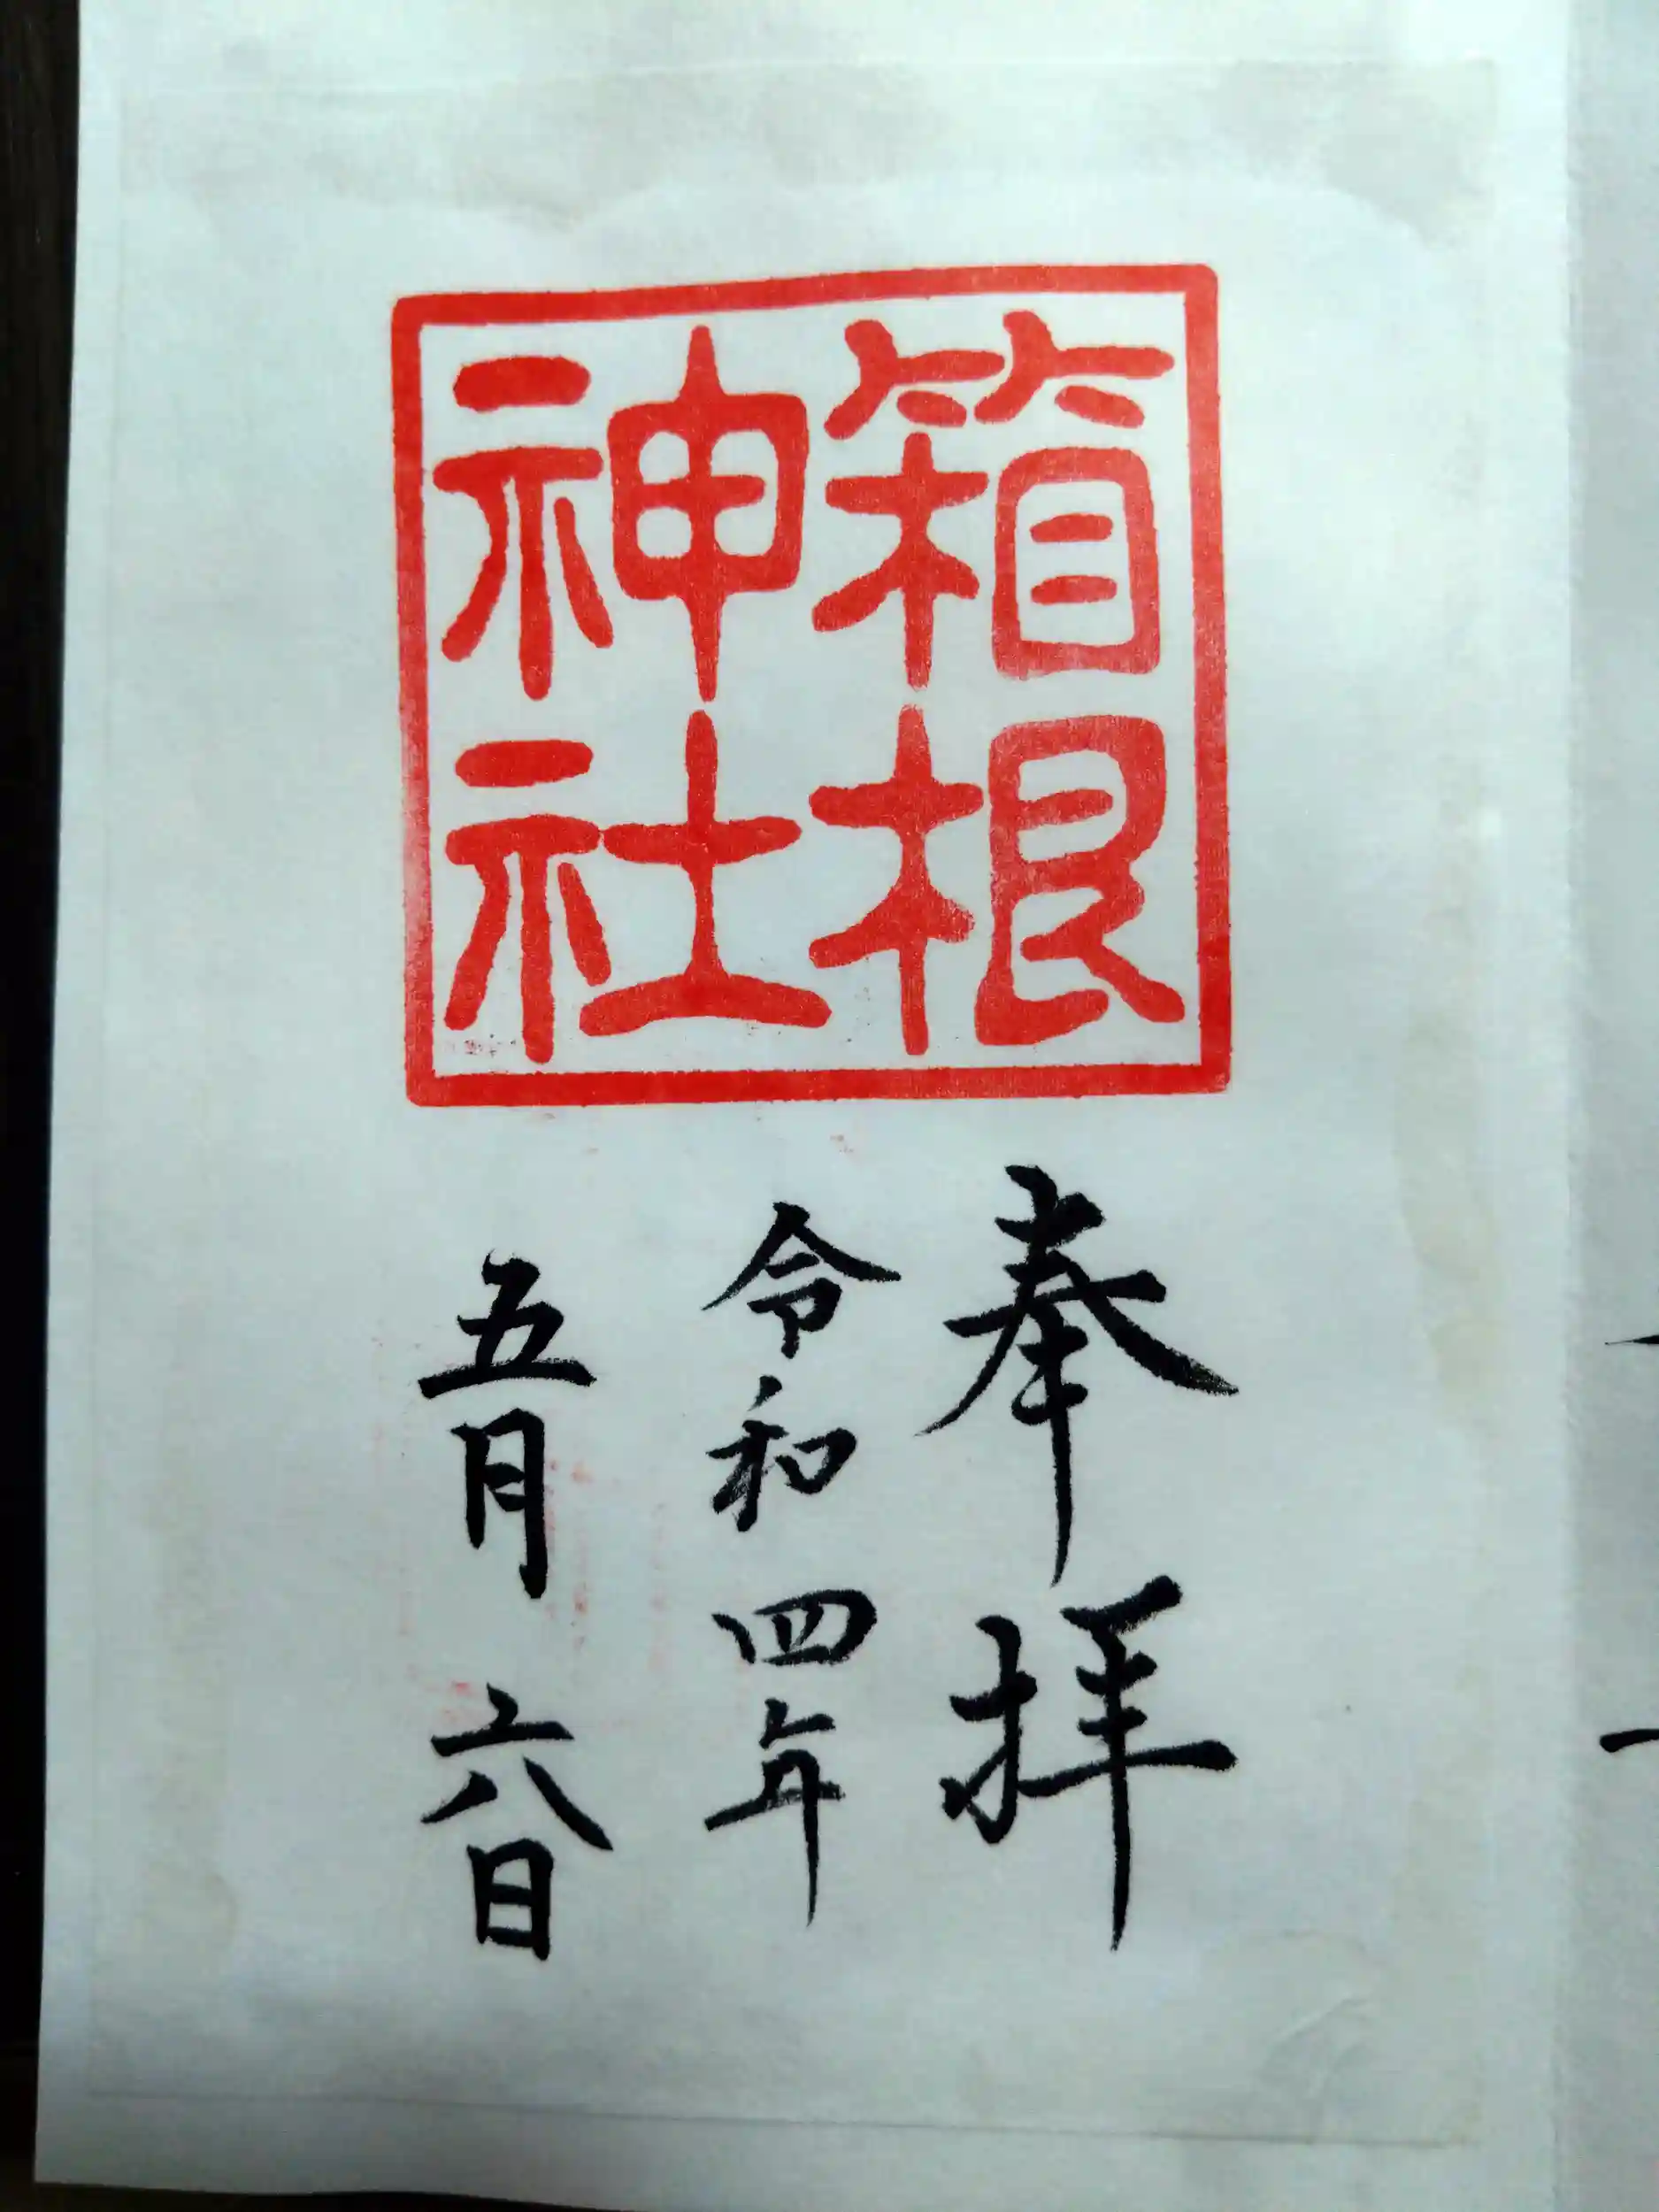 箱根
神社
奉拝
令和四年
五月六日